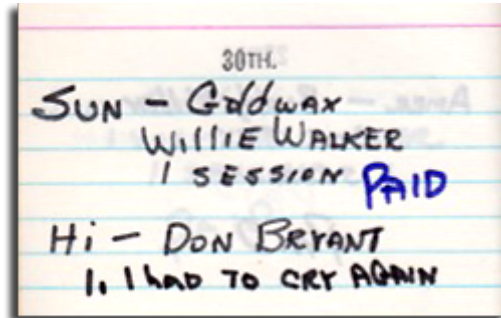 30TH.
SUN - Goldwax
WILLIE WALKER
1 SESSION PAID
Hi - DON BRYANT
1. I hAD TO CRY AGAIN